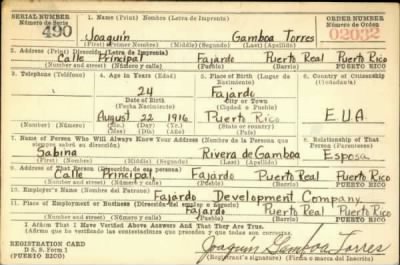 SERIAL NUMBER
Número de Serie
490
1. Name (Print) Nombre (Letra de Imprenta)
ORDER NUMBER
Número de Orden
02032
Joaquín Gamboa Torres
(First) Primer Nombre) (Middle) (Segundo) (Last) (Apellido)
2. Address (Print) Dirección (Letra de Imprenta)
Calle Principal Fajardo Puerto Real Puerto Rico
(Number and street) (Número y calle) (Pueblo) (Barrio) PUERTO RICO
3. Telephone (Teléfono)
4. Age in Years (Edad)
5. Place of Birth (Lugar de Nacimiento)
6. Country of Citizenship (Ciudadanía)
24
Fajardo
Date of Birth
(Fecha Nacimiento)
City or Town
(Ciudad o Pueblo)
August 22 1916
Puerto Rico
E U A
(Mo.) (Day) (Yr.)
(Mes) (Día) (Año)
(State or country)
7. Name of Person Who Will Always Know Your Address (Nombre de la Persona que siempre sabrá su dirección)
8. Relationship of That Person (Parentesco)
Sabina Rivera de Gamboa Esposa
(First) (Primer Nombre) (Middle) (Segundo) (Last) (Apellido)
9. Address of That Person (Dirección de esa persona)
Calle Principal, Fajardo Puerto Real Puerto Rico
(Number and street) (Número y calle) (Pueblo) (Barrio) PUERTO RICO
10. Employer's Name (Nombre del Patrono)
Fajardo Development Company
11. Place of Employment or Business (Dirección del empleo o Negocio)
Fajardo Puerto Real Puerto Rico
(Number and street) (Número y calle) (Pueblo) (Barrio) PUERTO RICO
I Affirm That I Have Verified Above Answers And That They Are True.
(Afirmo que he verificado las contestaciones que preceden y que todas son correctas.)
REGISTRATION CARD
D. S. S. Form 1
(PUERTO RICO)
Joaquin Gamboa Torres
(Registrant's signature) (Firma o marca del Inscrito)